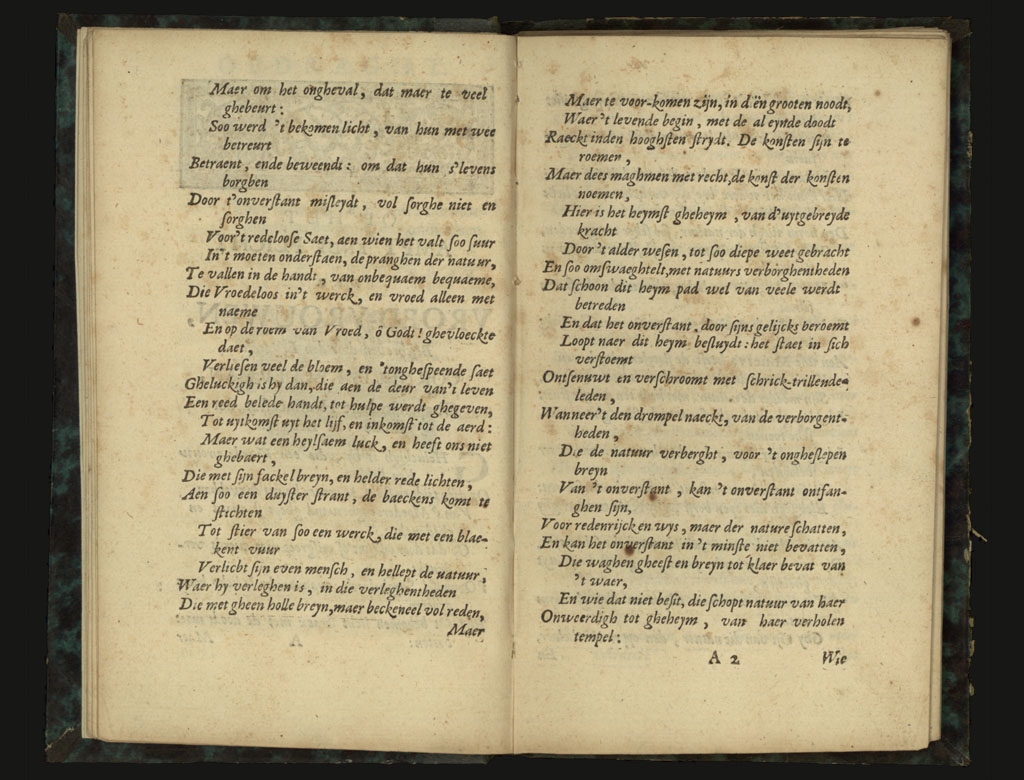 Maer om het ongheval, dat maer te veel
ghebeurt:
Soo werd 't bekomen licht, van hun met wee
betreurt
Betraent, ende beweendt: om dat hun s'levens
borghen
Door t'onverstant misleydt, vol sorghe niet en
sorghen
Voor't redeloose Saet, aen wien het valt soo suur
In't moeten onderstaen, de pranghen der natuur,
Te vallen in de handt, van onbequaem bequaeme,
Die Vroedeloos in't werck, en vroed alleen met
naeme
En op de roem van Vroed, ô Godt! ghevloeckte
daet,
Verliesen veel de bloem, en 'tonghespeende saet
Gheluckigh is hy dan, die aen de deur van't leven
Een reed belede handt, tot hulpe werdt ghegeven,
Tot uytkomst uyt het lijf, en inkomst tot de aerd:
Maer wat een heylsaem luck, en heeft ons niet
ghebaert,
Die met sijn fackel breyn, en helder rede lichten,
Aen soo een duyster strant, de baeckens komt te
stichten
Tot stier van soo een werck, die met een blae-
kent vuur
Verlicht sijn even mensch, en hellept de natuur,
Waer hy verleghen is, in die verleghentheden
Die met gheen holle breyn, maer beckeneel vol reden,
Maer
Maer te voor-komen zijn, in d'ën grooten noodt,
Waer't levende begin, met de al eynde doodt
Raeckt inden hooghsten strydt. De konsten sijn te
roemen,
Maer dees maghmen met recht, de konst der konsten
noemen,
Hier is het heymst gheheym, van d'uytgebreyde
kracht
Door 't alder wesen, tot soo diepe weet gebracht
En soo omswaeghtelt, met natuurs verborghentheden
Dat schoon dit heym pad wel van veele werdt
betreden
En dat het onverstant, door sijns gelijcks beroemt
Loopt naer dit heym besluydt: het staet in sich
verstoemt
Ontsenuwt en verschroomt met schrick-trillende-
leden,
Wanneer't den drompel naeckt, van de verborgent-
heden,
Die de natuur verberght, voor 't ongheslepen
breyn
Van 't onverstant, kan 't onverstant ontfan-
ghen sijn,
Voor redenrijck en wys, maer der nature schatten,
En kan het onverstant in 't minste niet bevatten,
Die waghen gheest en breyn tot klaer bevat van
't waer,
En wie dat niet besit, die schopt natuur van haer
Onweerdigh tot gheheym, van haer verholen
tempel:
A 2 Wie